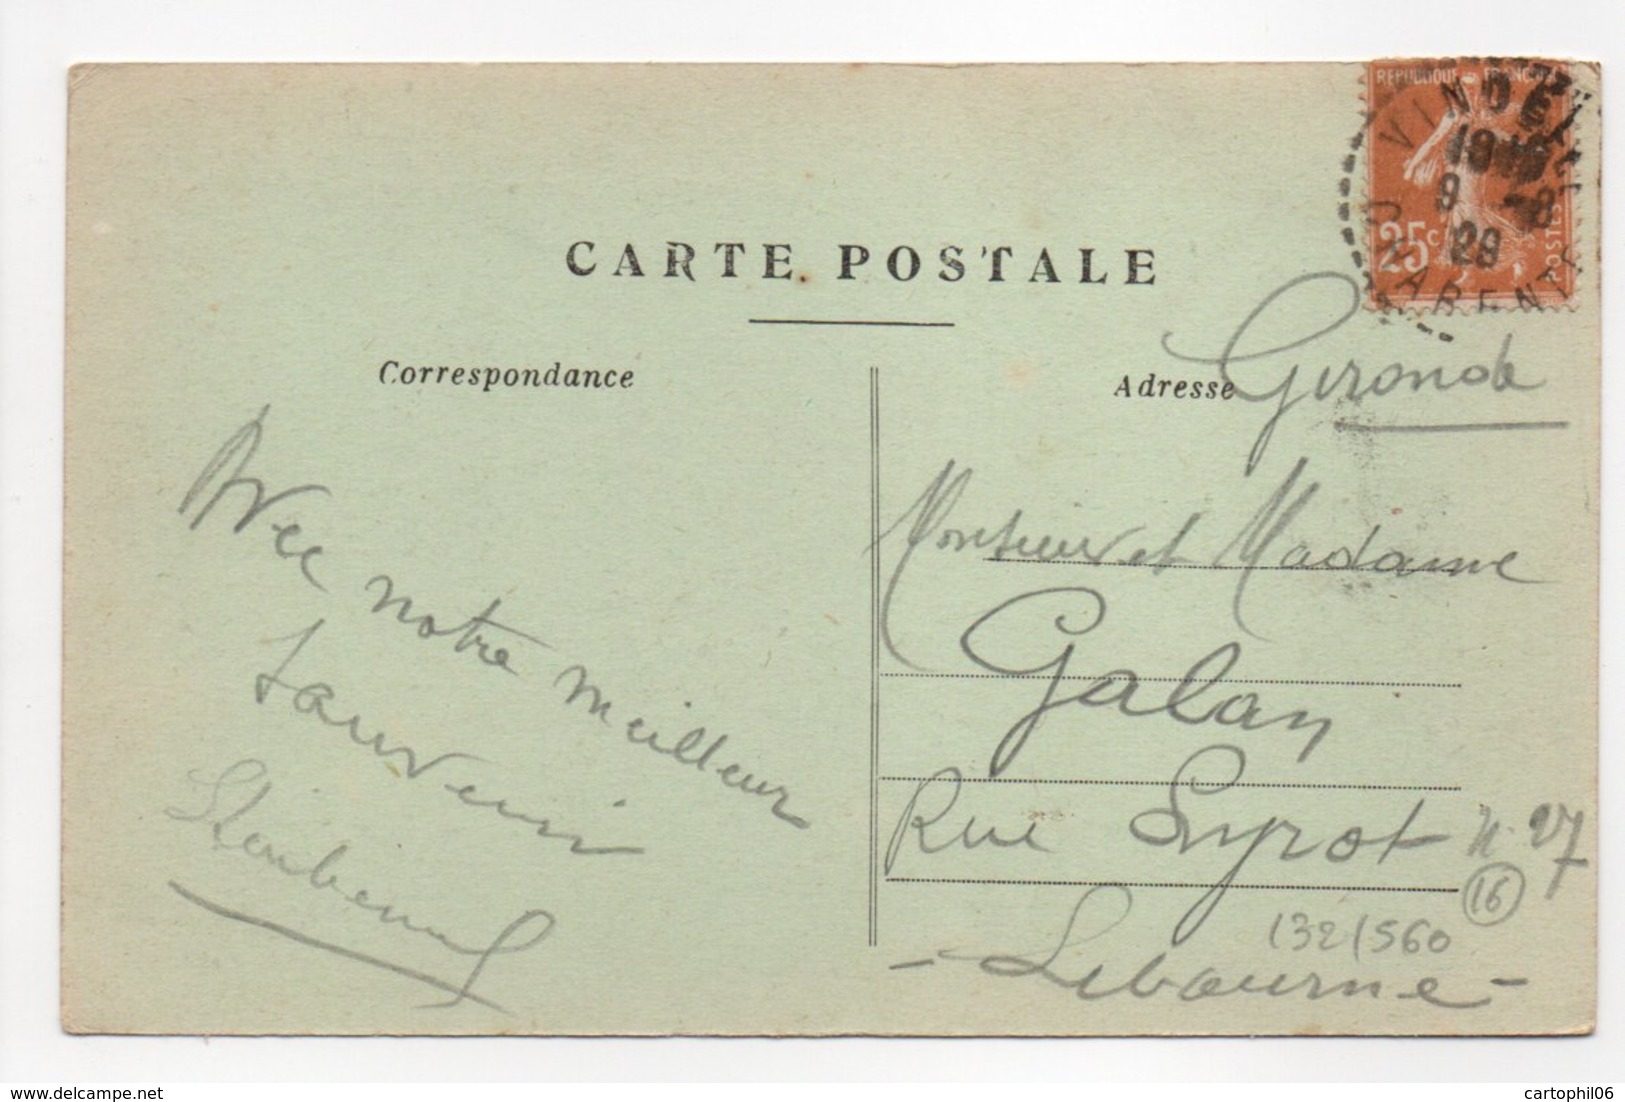 REPUBLIQUE FRANÇAISE
VINDELLE
10 10
9 -8
29
CHARENTE
25c
POSTES
CARTE POSTALE
Correspondance
Adresse
Gironde
Avec notre
meilleur
souvenir
Monsieur et Madame
Galan
Rue N. 27
16
132/560
- Libourne -
www.delcampe.net
cartophil06